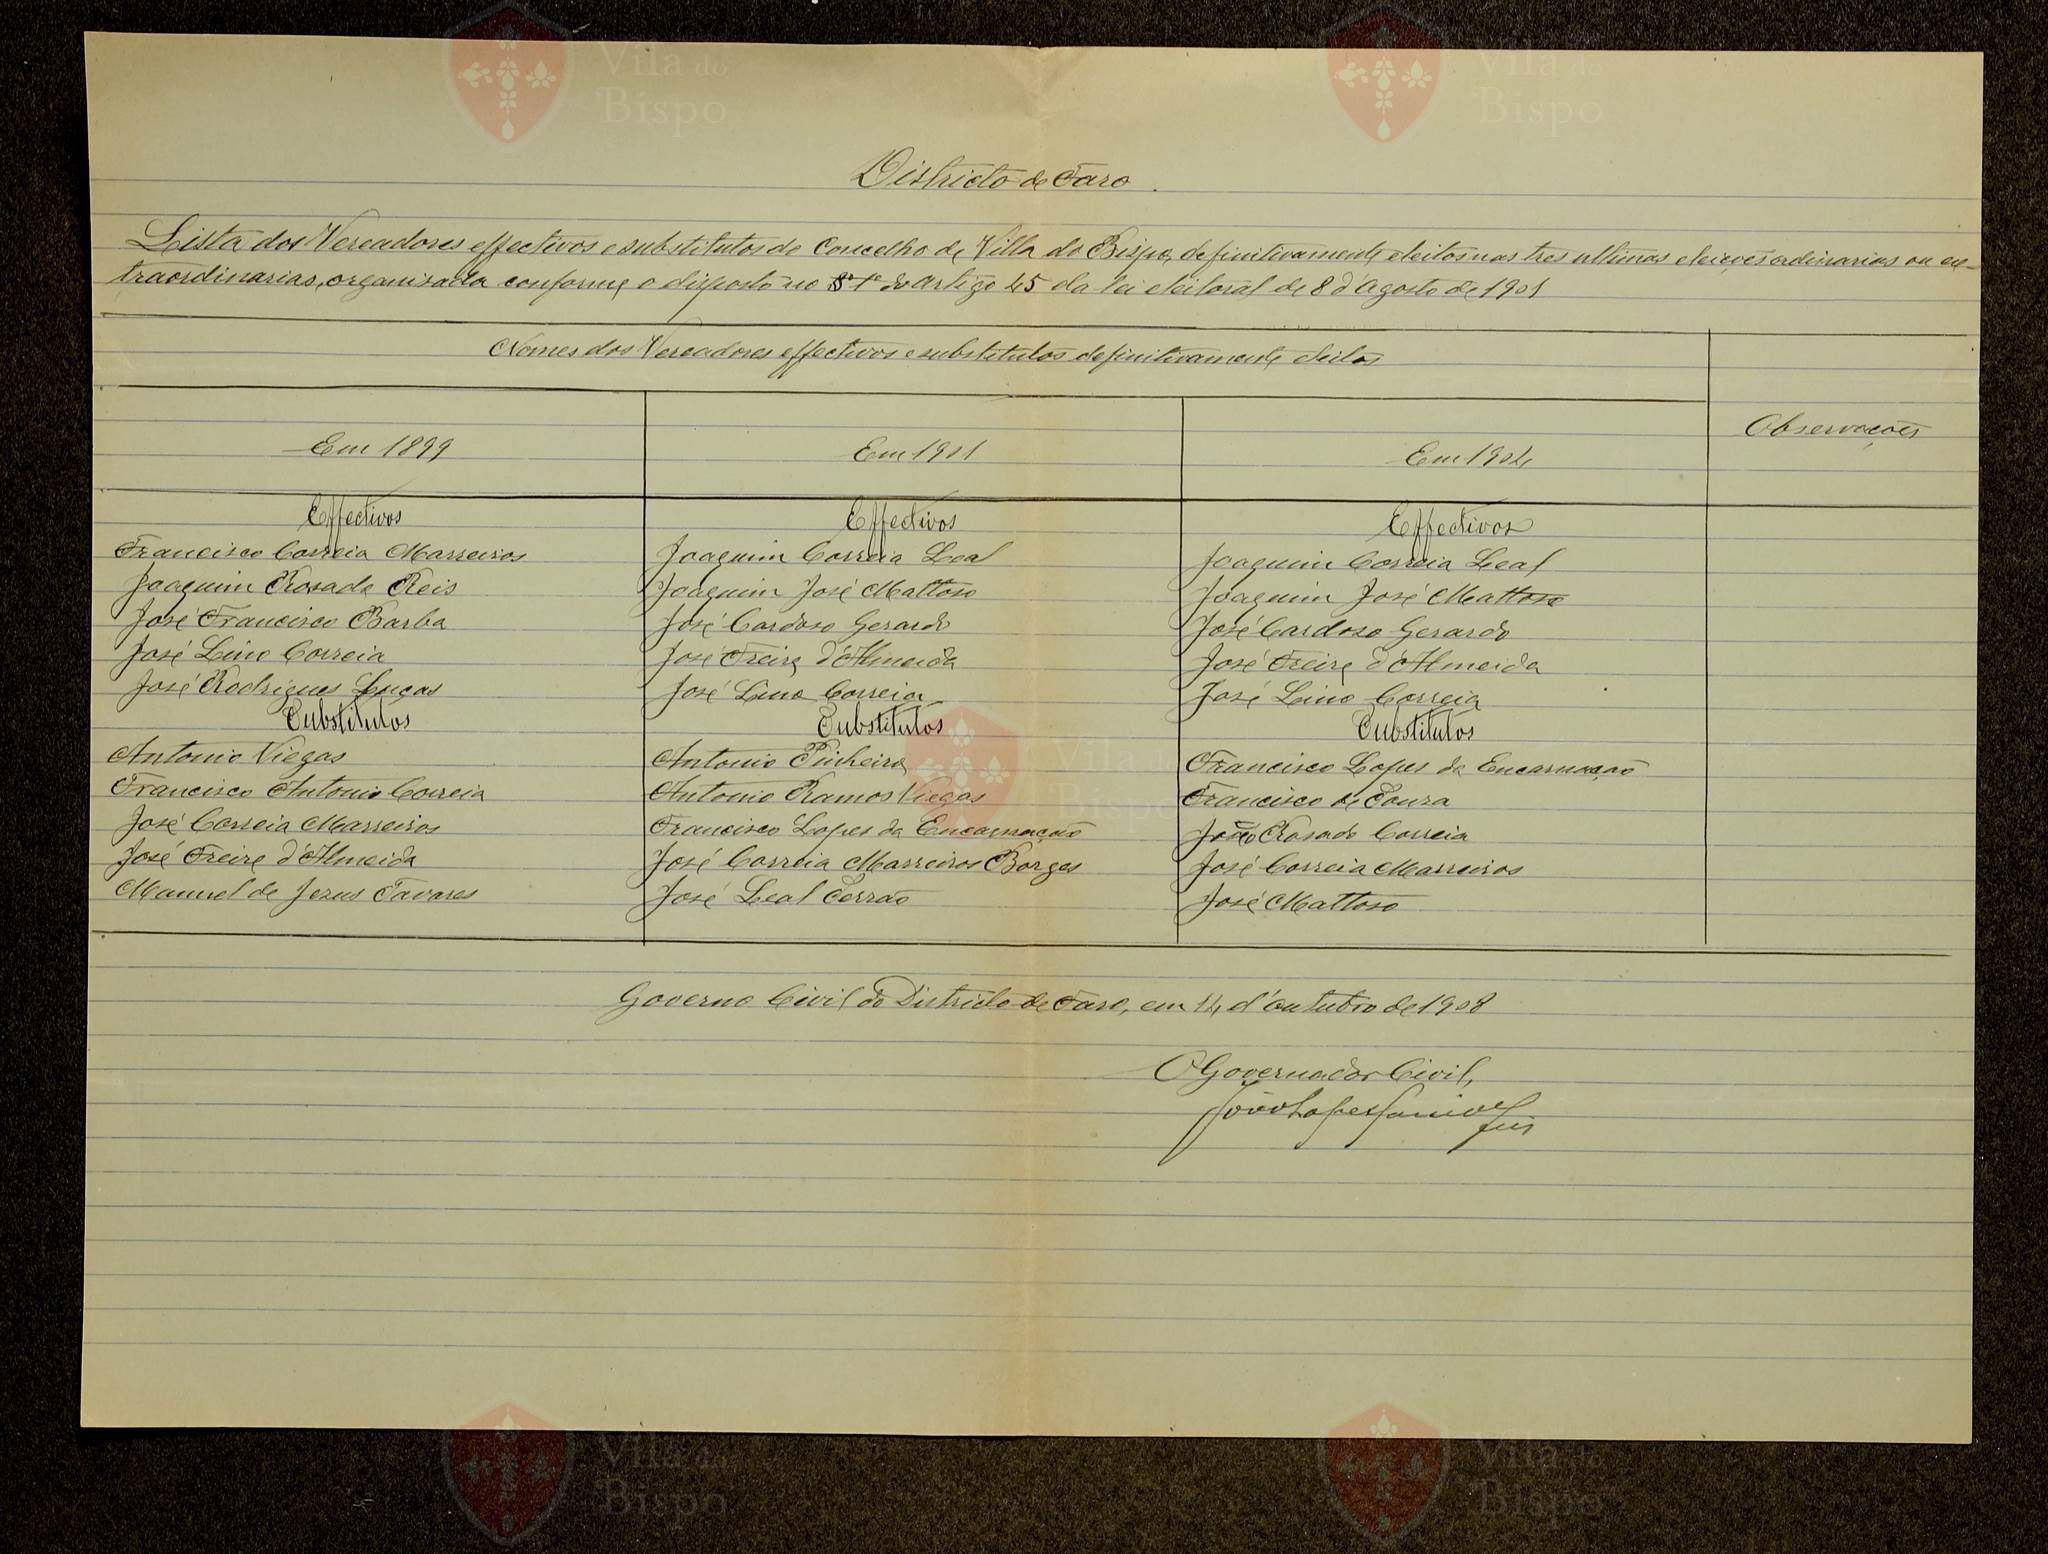 Vila do Bispo
Vila do Bispo
Districto de Faro.
Lista dos Vereadores effectivos e substitutos do Concelho de Villa do Bispo, definitivamente eleitos nas tres ultimas eleições ordinarias ou ex-
traordinarias, organisada conforme o disposto no § 1º do artigo 45 da lei eleitoral de 8 d'Agosto de 1901
Nomes dos Vereadores effectivos e substitutos definitivamente eleitos
Observações
Em 1899
Em 1901
Em 1904
Effectivos
Francisco Correia Marreiros
Joaquim Rosado Reis
José Francisco Barba
José Lino Correia
José Rodrigues Lucas
Substitutos
Antonio Viegas
Francisco Antonio Correia
José Correia Marreiros
José Freire d'Almeida
Manuel de Jezus Tavares
Effectivos
Joaquim Correia Leal
Joaquim José Mattoso
José Cardoso Gerardo
José Freire d'Almeida
José Lino Correia
Substitutos
Antonio Pinheiro
Antonio Ramos Viegas
Francisco Lopes da Encarnação
José Correia Marreiros Borges
José Leal Serrão
Effectivos
Joaquim Correia Leal
Joaquim José Mattoso
José Cardoso Gerardo
José Freire d'Almeida
José Lino Correia
Substitutos
Francisco Lopes da Encarnação
Francisco de Souza
João Rosado Correia
José Correia Marreiros
José Mattoso
Governo Civil do Districto de Faro, em 14 d'outubro de 1908
O Governador Civil,
João Lopes
Vila do Bispo
Vila do Bispo
Vila do Bispo